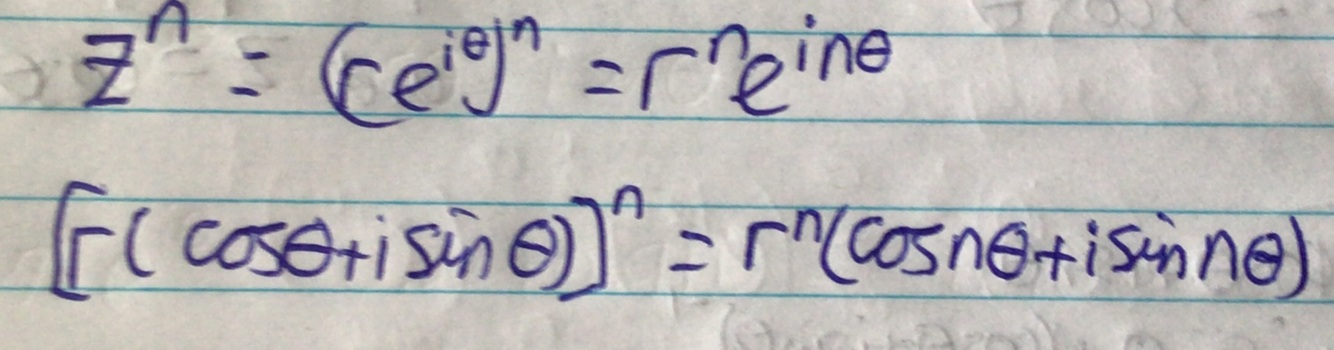 zⁿ = (re^{iθ})ⁿ = rⁿe^{inθ}
[r(cosθ+i sinθ)]ⁿ = rⁿ(cosnθ+i sin nθ)